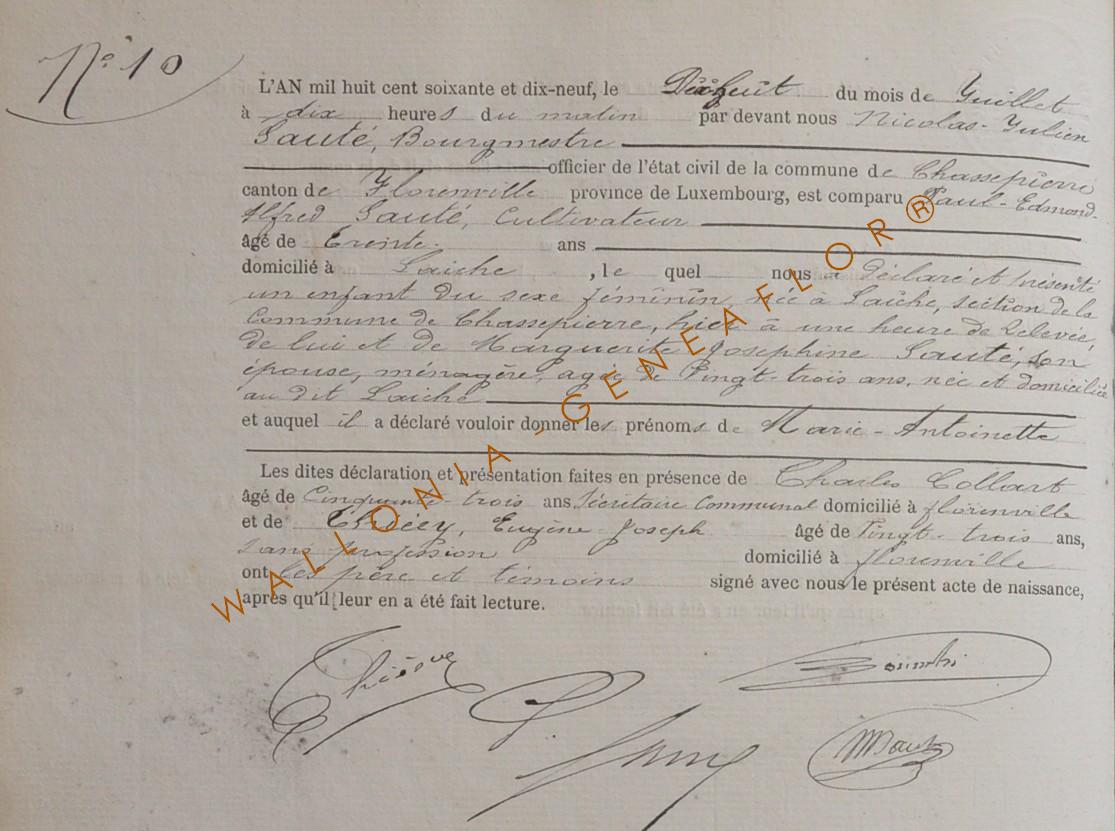 N° 10
L'AN mil huit cent soixante et dix-neuf, le Dixhuit du mois de Juillet
à dix heures du matin par devant nous Nicolas-Julien
Sauté, Bourgmestre
officier de l'état civil de la commune de Chassepierre
canton de Florenville province de Luxembourg, est comparu Paul-Edmond-
Alfred Sauté, Cultivateur
âgé de trente ans
domicilié à Laiche, le quel nous a déclaré et présenté
un enfant du sexe féminin, née à Laiche, section de la
Commune de Chassepierre, hier à une heure de relevée,
de lui et de Marguerite Josephine Sauté, son
épouse, ménagère, agée de Vingt-trois ans, née et domiciliée
au dit Laiche
et auquel il a déclaré vouloir donner les prénoms de Marie-Antoinette
Les dites déclaration et présentation faites en présence de Charles Collart
âgé de Cinquante-trois ans Sécrétaire Communal domicilié à florenville
et de Eugène-Joseph âgé de Vingt-trois ans,
sans profession domicilié à florenville
ont les père et témoins signé avec nous le présent acte de naissance,
après qu'il leur en a été fait lecture.
WALLONIA-GENEAFLOR®